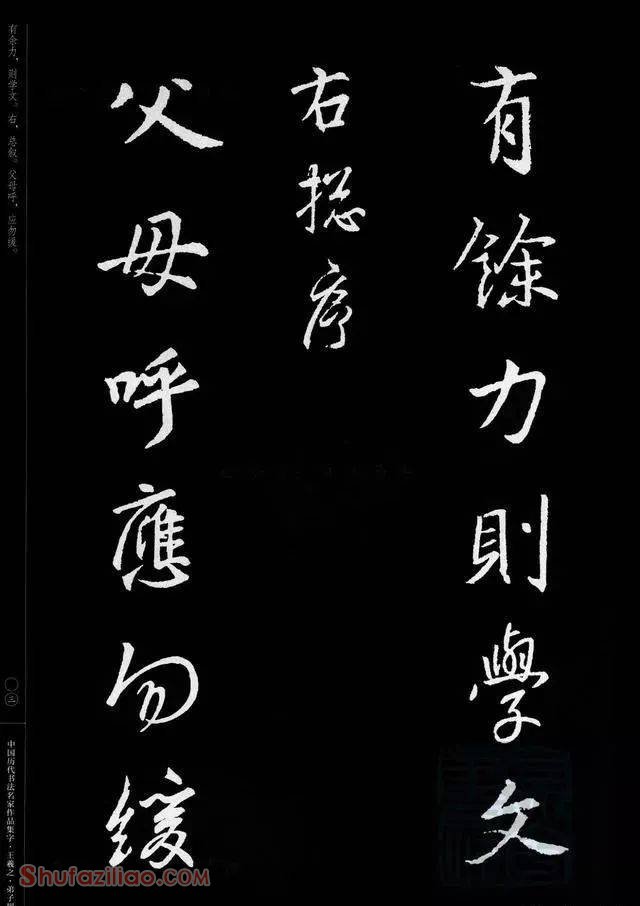 有餘力則學文
右揔序
父母呼應勿緩
有余力，则学文。右，总叙。父母呼，应勿缓。
〇三
中国历代书法名家作品集字·王羲之·弟子规
Shufaziliao.com